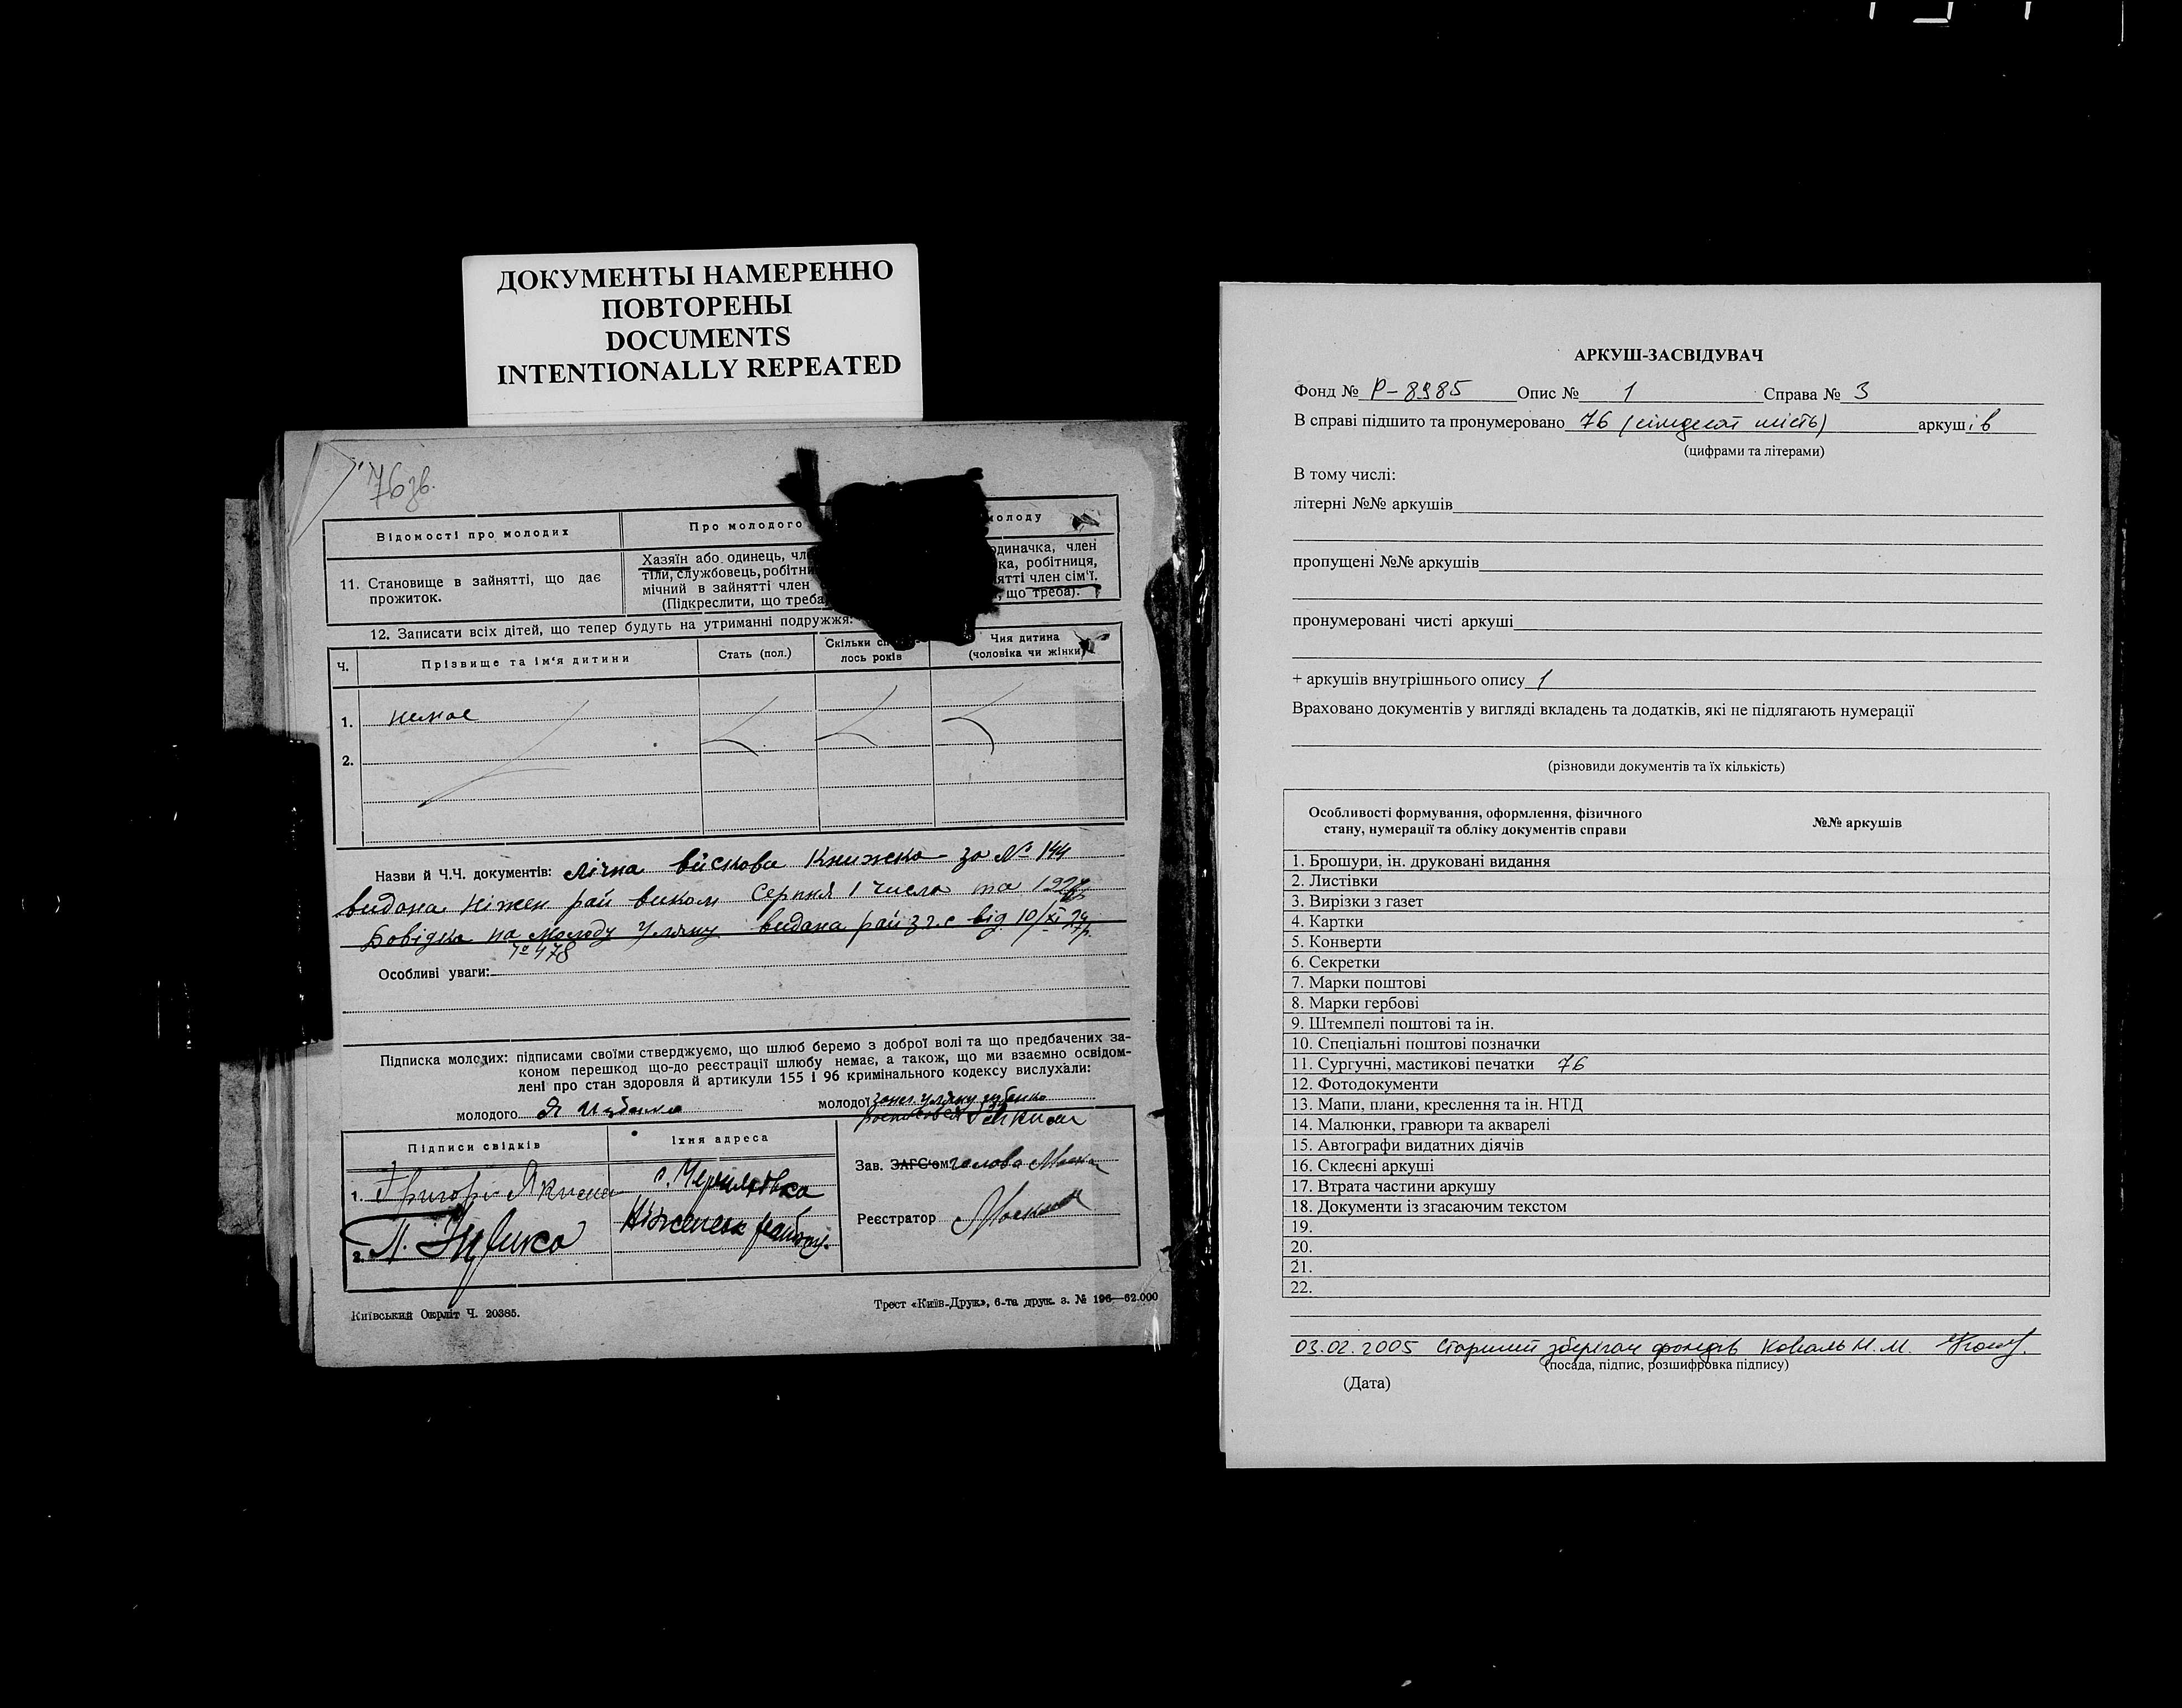 ДОКУМЕНТЫ НАМЕРЕННО
ПОВТОРЕНЫ
DOCUMENTS
INTENTIONALLY REPEATED
76 зв.
Відомості про молодих
Про молодого
молоду
11. Становище в зайнятті, що дає
прожиток.
Хазяїн або одинець, чле
тіли, службовець, робітни
мічний в зайнятті член
(Підкреслити, що треба
одиначка, член
ка, робітниця,
нятті член сім'ї.
, що треба).
12. Записати всіх дітей, що тепер будуть на утриманні подружжя:
Ч.
Прізвище та ім'я дитини
Стать (пол.)
Скільки
лось років
Чия дитина
(чоловіка чи жінки)
1. немає
2.
Назви й Ч.Ч. документів: Лічна війскова Книжка за № 144
видана Ніжен рай виком Серпня 1 числа
Довідка на молоду Уляну видана рай загс від 10/XI
478
Особливі уваги:
Підписка молодих: підписами своїми стверджуємо, що шлюб беремо з доброї волі та що предбачених за-
коном перешкод що-до реєстрації шлюбу немає, а також, що ми взаємно освідом-
лені про стан здоровля й артикули 155 і 96 кримінального кодексу вислухали:
молодого
молодої
Підписи свідків
Їхня адреса
1. Григорі Якимен
с.
Ніженськ району
2.
Зав. ЗАГС'ом голова
Реєстратор
Київський Окрліт Ч. 20385.
Трест «Київ-Друк», 6-та друк. з. № 196—62.000
АРКУШ-ЗАСВІДУВАЧ
Фонд № Р-8985 Опис № 1 Справа № 3
В справі підшито та пронумеровано 76 (сімдесят шість) аркушів
(цифрами та літерами)
В тому числі:
літерні №№ аркушів
пропущені №№ аркушів
пронумеровані чисті аркуші
+ аркушів внутрішнього опису 1
Враховано документів у вигляді вкладень та додатків, які не підлягають нумерації
(різновиди документів та їх кількість)
Особливості формування, оформлення, фізичного
стану, нумерації та обліку документів справи
№№ аркушів
1. Брошури, ін. друковані видання
2. Листівки
3. Вирізки з газет
4. Картки
5. Конверти
6. Секретки
7. Марки поштові
8. Марки гербові
9. Штемпелі поштові та ін.
10. Спеціальні поштові позначки
11. Сургучні, мастикові печатки 76
12. Фотодокументи
13. Мапи, плани, креслення та ін. НТД
14. Малюнки, гравюри та акварелі
15. Автографи видатних діячів
16. Склеєні аркуші
17. Втрата частини аркушу
18. Документи із згасаючим текстом
19.
20.
21.
22.
03.02.2005 Старший зберігач фондів Коваль Н.М.
(посада, підпис, розшифровка підпису)
(Дата)